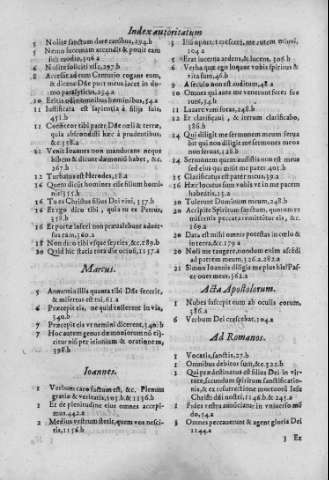 Index autoritatum
5 Nolite sanctum dare canibus, 294.b
5 Nemo lucernam accendit & ponit eam
sub modio, 306.a
6 Nolite soliciti esse, 297.b
8 Accessit ad eum Centurio rogans eum,
& dicens Dñe puer meus iacet in do
mo paralyticus, 234.a
10 Eritis odio omnibus hominibus, 54.a
11 Iustificata est sapientia à filiis suis,
451.b
11 Confiteor tibi pater Dñe cœli & terræ,
quia abscondisti hæc à prudentibus,
&c.
11 Venit Ioannes non manducans neque
bibens & dicunt dæmonium habet, &c.
267.b
12 Turbatus est Herodes, 18.a
16 Quem dicunt homines esse filium homi-
nis, 355.b
16 Tu es Christus filius Dei vivi, 357.b
16 Et ego dico tibi, quia tu es Petrus,
358.b
16 Et portæ inferi non prævalebunt adver-
sus eam, 360.a
18 Non dico tibi usque septies, &c. 289.b
20 Quid hic statis tota die otiosi, 1157.a
Marcus.
5 Annuntia illis quanta tibi Dñs fecerit,
& misertus est tui, 61.a
6 Præcepit eis, ne quid tollerent in via,
340.b
7 Præcepit eis ne nemini dicerent, 340.b
9 Hoc autem genus dæmoniorum nõ eij-
citur nisi per ieiunium & orationem,
398.b
Ioannes.
1 Verbum caro factum est, &c. Plenum
gratiæ & veritatis, 103.b & 1136.b
1 Et de plenitudine eius omnes accepi-
mus, 442.a
2 Medius vestrum stetit, quem vos nesci-
tis, 1156.b
204.a
5 Erat lucerna ardens, & lucens, 306.b
6 Verba quæ ego loquor vobis spiritus &
vita sunt, 46.b
9 A seculo non est auditum, 48.a
10 Omnes qui ante me venerunt fures &c.
104.b
11 Lazare veni foras, 248.b
12 Et clarificavi, & iterum clarificabo,
386.b
14 Qui diligit me sermonem meum serva
bit qui non diligit sermones meos non
servat
24 Sermonem quem audistis non est meus
sed eius qui misit me pater, 401.b
35 Clarificatus est pater meus, 39.a
16 Hæc locutus sum vobis ut in me pacem
habeatis, 25.a
20 Tulerunt Dominum meum, 248.b
20 Accipite Spiritum sanctum, quorum re
miseritis peccata remittuntur eis, &c.
169.a
20 Data est mihi omnis potestas in cœlo &
in terra, &c. 179.a
20 Noli me tangere, nondum enim ascēdi
ad patrem meum, 326.b & 382.a
21 Simon Ioannis diligis me plus his? Pas
ce oves meas, 362.a
Acta Apostolorum.
1 Nubes suscepit eum ab oculis eorum,
386.a
6 Verbum Dei crescebat, 104.a
Ad Romanos.
1 Vocatis, sanctis, 27.b
1 Omnibus debitor sum, &c. 322.b
1 Qui prædestinatus est filius Dei in vir-
tute, secundum spiritum sanctificatio-
nis, & ex resurrectione mortuorũ Iesu
Christi dñi nostri, 1146.b & 245.a
1 Fides vestra annũciatur in universo mũ
do, 54.a
3 Omnes peccaverunt & egent gloria Dei
1144.a
3 Ex